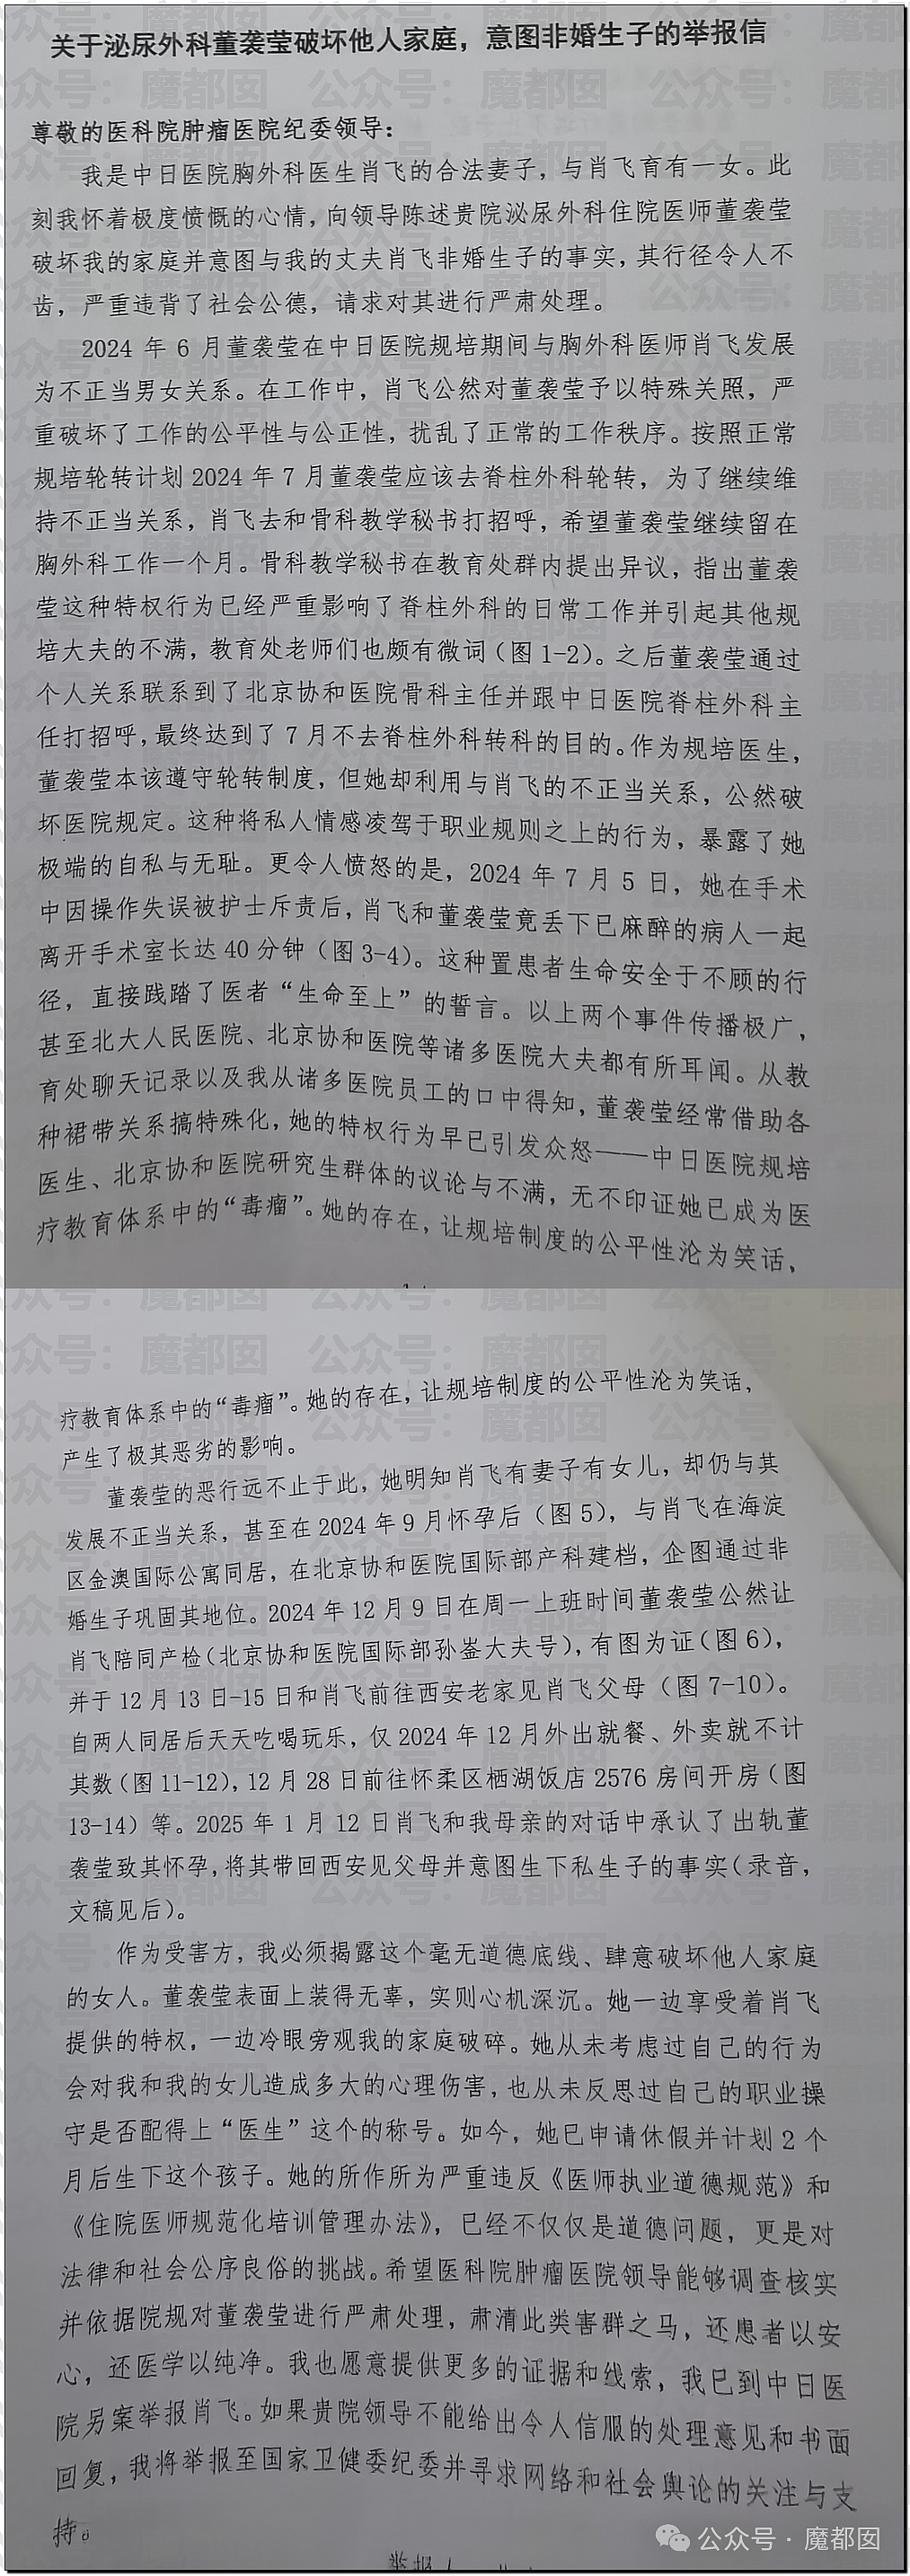 关于泌尿外科董袭莹破坏他人家庭，意图非婚生子的举报信
尊敬的医科院肿瘤医院纪委领导：
我是中日医院胸外科医生肖飞的合法妻子，与肖飞育有一女。此
刻我怀着极度愤慨的心情，向领导陈述贵院泌尿外科住院医师董袭莹
破坏我的家庭并意图与我的丈夫肖飞非婚生子的事实，其行径令人不
齿，严重违背了社会公德，请求对其进行严肃处理。
2024 年 6 月董袭莹在中日医院规培期间与胸外科医师肖飞发展
为不正当男女关系。在工作中，肖飞公然对董袭莹予以特殊关照，严
重破坏了工作的公平性与公正性，扰乱了正常的工作秩序。按照正常
规培轮转计划 2024 年 7 月董袭莹应该去脊柱外科轮转，为了继续维
持不正当关系，肖飞去和骨科教学秘书打招呼，希望董袭莹继续留在
胸外科工作一个月。骨科教学秘书在教育处群内提出异议，指出董袭
莹这种特权行为已经严重影响了脊柱外科的日常工作并引起其他规
培大夫的不满，教育处老师们也颇有微词（图 1-2）。之后董袭莹通过
个人关系联系到了北京协和医院骨科主任并跟中日医院脊柱外科主
任打招呼，最终达到了 7 月不去脊柱外科转科的目的。作为规培医生，
董袭莹本该遵守轮转制度，但她却利用与肖飞的不正当关系，公然破
坏医院规定。这种将私人情感凌驾于职业规则之上的行为，暴露了她
极端的自私与无耻。更令人愤怒的是，2024 年 7 月 5 日，她在手术
中因操作失误被护士斥责后，肖飞和董袭莹竟丢下已麻醉的病人一起
离开手术室长达 40 分钟（图 3-4）。这种置患者生命安全于不顾的行
径，直接践踏了医者“生命至上”的誓言。以上两个事件传播极广，
甚至北大人民医院、北京协和医院等诸多医院大夫都有所耳闻。从教
育处聊天记录以及我从诸多医院员工的口中得知，董袭莹经常借助各
种裙带关系搞特殊化，她的特权行为早已引发众怒——中日医院规培
医生、北京协和医院研究生群体的议论与不满，无不印证她已成为医
疗教育体系中的“毒瘤”。她的存在，让规培制度的公平性沦为笑话，
疗教育体系中的“毒瘤”。她的存在，让规培制度的公平性沦为笑话，
产生了极其恶劣的影响。
董袭莹的恶行远不止于此，她明知肖飞有妻子有女儿，却仍与其
发展不正当关系，甚至在 2024 年 9 月怀孕后（图 5），与肖飞在海淀
区金澳国际公寓同居，在北京协和医院国际部产科建档，企图通过非
婚生子巩固其地位。2024 年 12 月 9 日在周一上班时间董袭莹公然让
肖飞陪同产检（北京协和医院国际部孙崟大夫号），有图为证（图 6），
并于 12 月 13 日-15 日和肖飞前往西安老家见肖飞父母（图 7-10）。
自两人同居后天天吃喝玩乐，仅 2024 年 12 月外出就餐、外卖就不计
其数（图 11-12），12 月 28 日前往怀柔区栖湖饭店 2576 房间开房（图
13-14）等。2025 年 1 月 12 日肖飞和我母亲的对话中承认了出轨董
袭莹致其怀孕，将其带回西安见父母并意图生下私生子的事实（录音，
文稿见后）。
作为受害方，我必须揭露这个毫无道德底线、肆意破坏他人家庭
的女人。董袭莹表面上装得无辜，实则心机深沉。她一边享受着肖飞
提供的特权，一边冷眼旁观我的家庭破碎。她从未考虑过自己的行为
会对我和我的女儿造成多大的心理伤害，也从未反思过自己的职业操
守是否配得上“医生”这个的称号。如今，她已申请休假并计划 2 个
月后生下这个孩子。她的所作所为严重违反《医师执业道德规范》和
《住院医师规范化培训管理办法》，已经不仅仅是道德问题，更是对
法律和社会公序良俗的挑战。希望医科院肿瘤医院领导能够调查核实
并依据院规对董袭莹进行严肃处理，肃清此类害群之马，还患者以安
心，还医学以纯净。我也愿意提供更多的证据和线索，我已到中日医
院另案举报肖飞。如果贵院领导不能给出令人信服的处理意见和书面
回复，我将举报至国家卫健委纪委并寻求网络和社会舆论的关注与支
持。
公众号 · 魔都囡